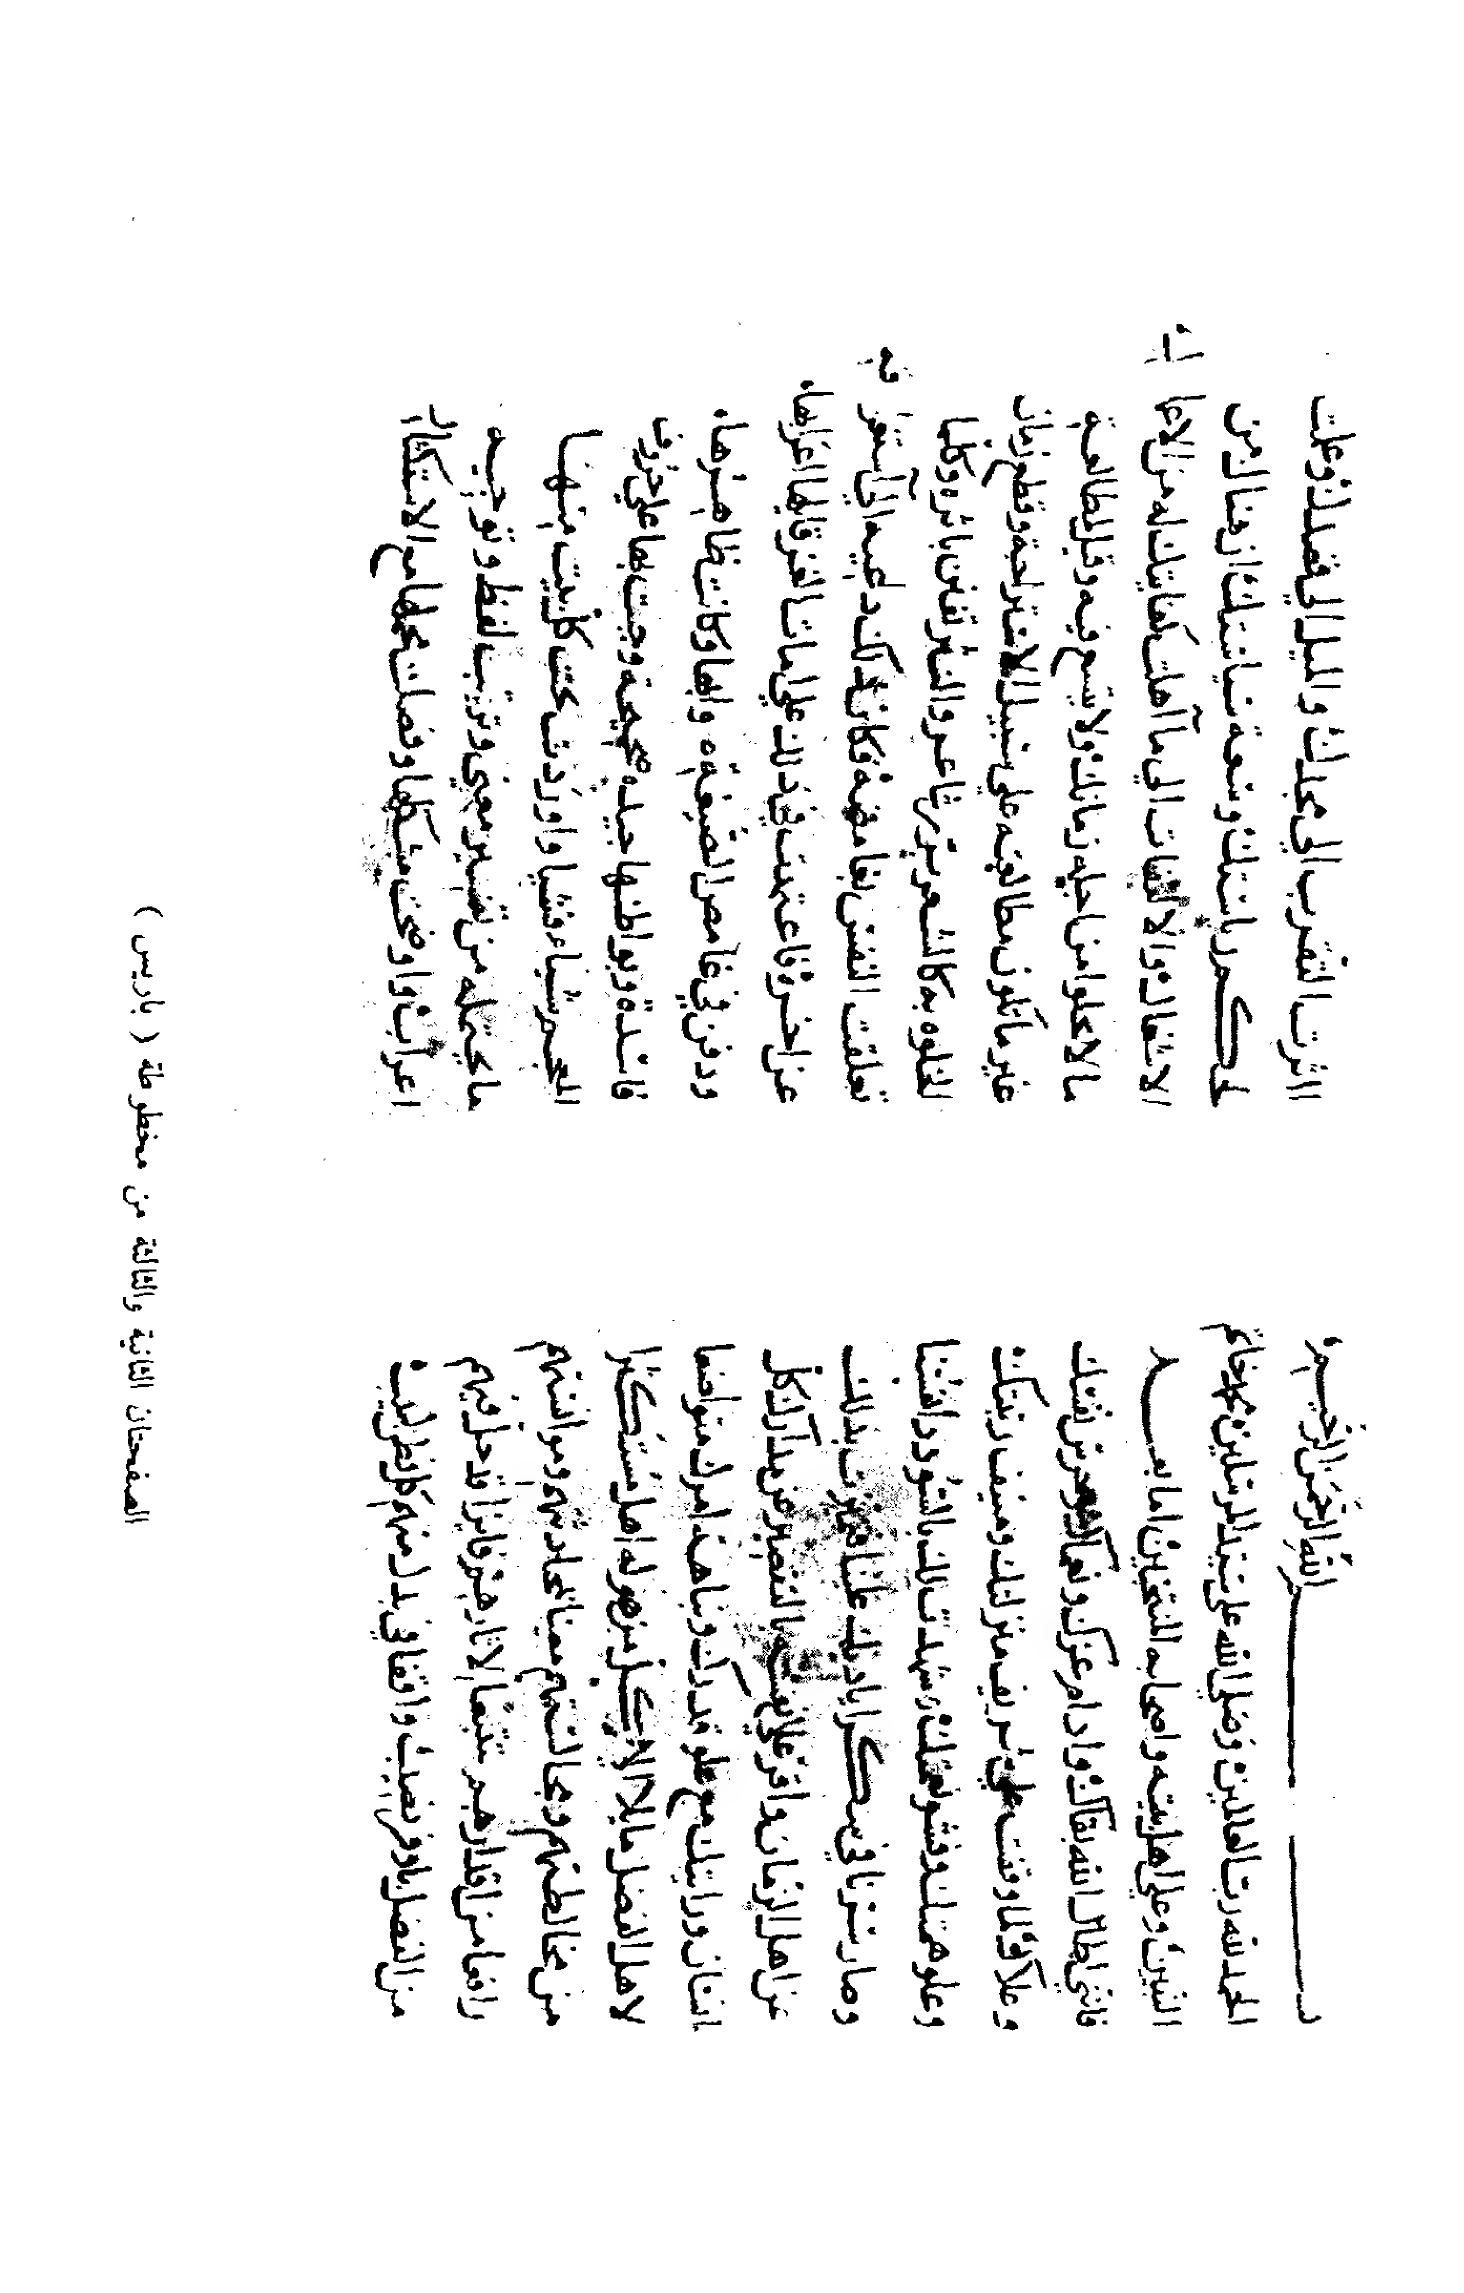 بسم الله الرحمن الرحيم
الحمد لله رب العالمين وصلى الله على سيد المرسلين محمد خاتم
النبيين وعلى اهل بيته واصحابه المنتخبين اما بعد
فانني اطال الله بقاك وادام عزك ونعماك وحرس نعمتك
وعلاك لما وقفت على شريف منزلتك ومنيف رتبتك
وعلو همتك وفشو نعمتك شهدت لك بالسؤدد
وصار في شكر اياديك علينا بذلك
عن اهل الزمان واقر على نفسه بالتقصير عن مداك كل
انسان ورايتك مع علو قدرك ونباهة امرك متواضعا
لاهل الفضل مايلا الى كل من هو له اهل مستكثرا
من مخالطتهم ومجالستهم بمحادثتهم وموانستهم
رافعا من اقدارهم متتبعا لاثارهم قد حل فيهم
من الفضل باوفر نصيب واقفا في منهم كل
اثرت التقرب الى مجدك والميل الى فضلك وعلت
لحكم رياستك وسعة سياستك ان هنالك من
الاشغال والالتفات الى ما اهلت كفايتك له من الاعمال
ما لا يخلوا من اجله زمانك ولا يتسع فيه وقتك لمطالعة
غير ما تكون مطالعته على سبيل الاستراحة وقطع زمان
الخلوه به كالشعر والنثر باثره وكلما
تعلقت النفس بغامضه فكان ذلك داعيه الى
عن اخره فاعتمدت في ذلك على ابيات الغز قايلها اعرابها
ودفن في غامض الصنعة وكانت ظاهرها
فاسدة وبواطنها جيده صحيحة وجيت بها على حروف
المعجم شياء فشيا واوردت تحت كل بيت منها
ما يحتمله من تفسير معنى وترتيب لفظ وتوجيه
اعراب واوضحت مشكلها وفصلت مجملها مع الاستكثار
الصفحتان الثانية والثالثة من مخطوطة ( باريس )